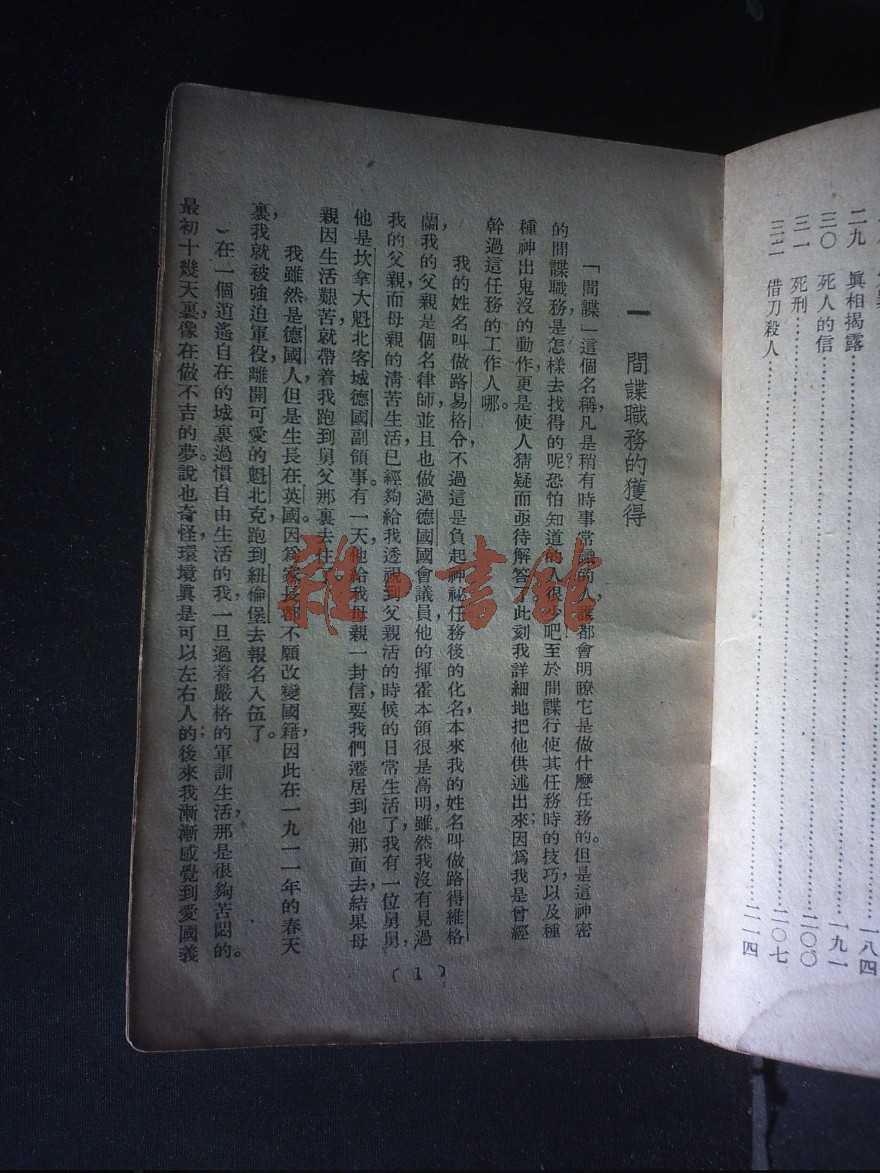 一八四
二九　眞相揭露……一九一
三〇　死人的信……二〇〇
三一　死刑……二〇七
三二　借刀殺人……二一四
一　間諜職務的獲得
「間諜」這個名稱，凡是稍有時事常識的人，誰都會明瞭它是做什麼任務的。但是這神密
的間諜職務，是怎樣去找得的呢？恐怕知道的人很少吧至於間諜行使其任務時的技巧，以及種
種神出鬼沒的動作，更是使人猜疑而亟待解答。此刻我詳細地把他供述出來；因爲我是曾經
幹過這任務的工作人哪。
我的姓名叫做路易格合，不過這是負起神祕任務後的化名，本來我的姓名叫做路得維格
蘭，我的父親是個名律師，並且也做過德國國會議員，他的揮霍本領很是高明，雖然我沒有見過
我的父親，而母親的淸苦生活，已經夠給我透視到父親活的時候的日常生活了，我有一位舅舅，
他是坎拿大魁北客城德國副領事。有一天，他給我母親一封信，要我們遷居到他那面去，結果母
親因生活艱苦，就帶着我跑到舅父那裏去住了
我雖然是德國人，但是生長在英國。因爲家長都不願改變國籍，因此在一九一一年的春天
裏，我就被強迫軍役，離開可愛的魁北克，跑到紐倫堡去報名入伍了。
在一個逍遙自在的城裏過慣自由生活的我，一旦過着嚴格的軍訓生活，那是很夠苦悶的。
最初十幾天裏，像在做不吉的夢。說也奇怪，環境眞是可以左右人的；後來我漸漸感覺到愛國義
（1）
雜·書館